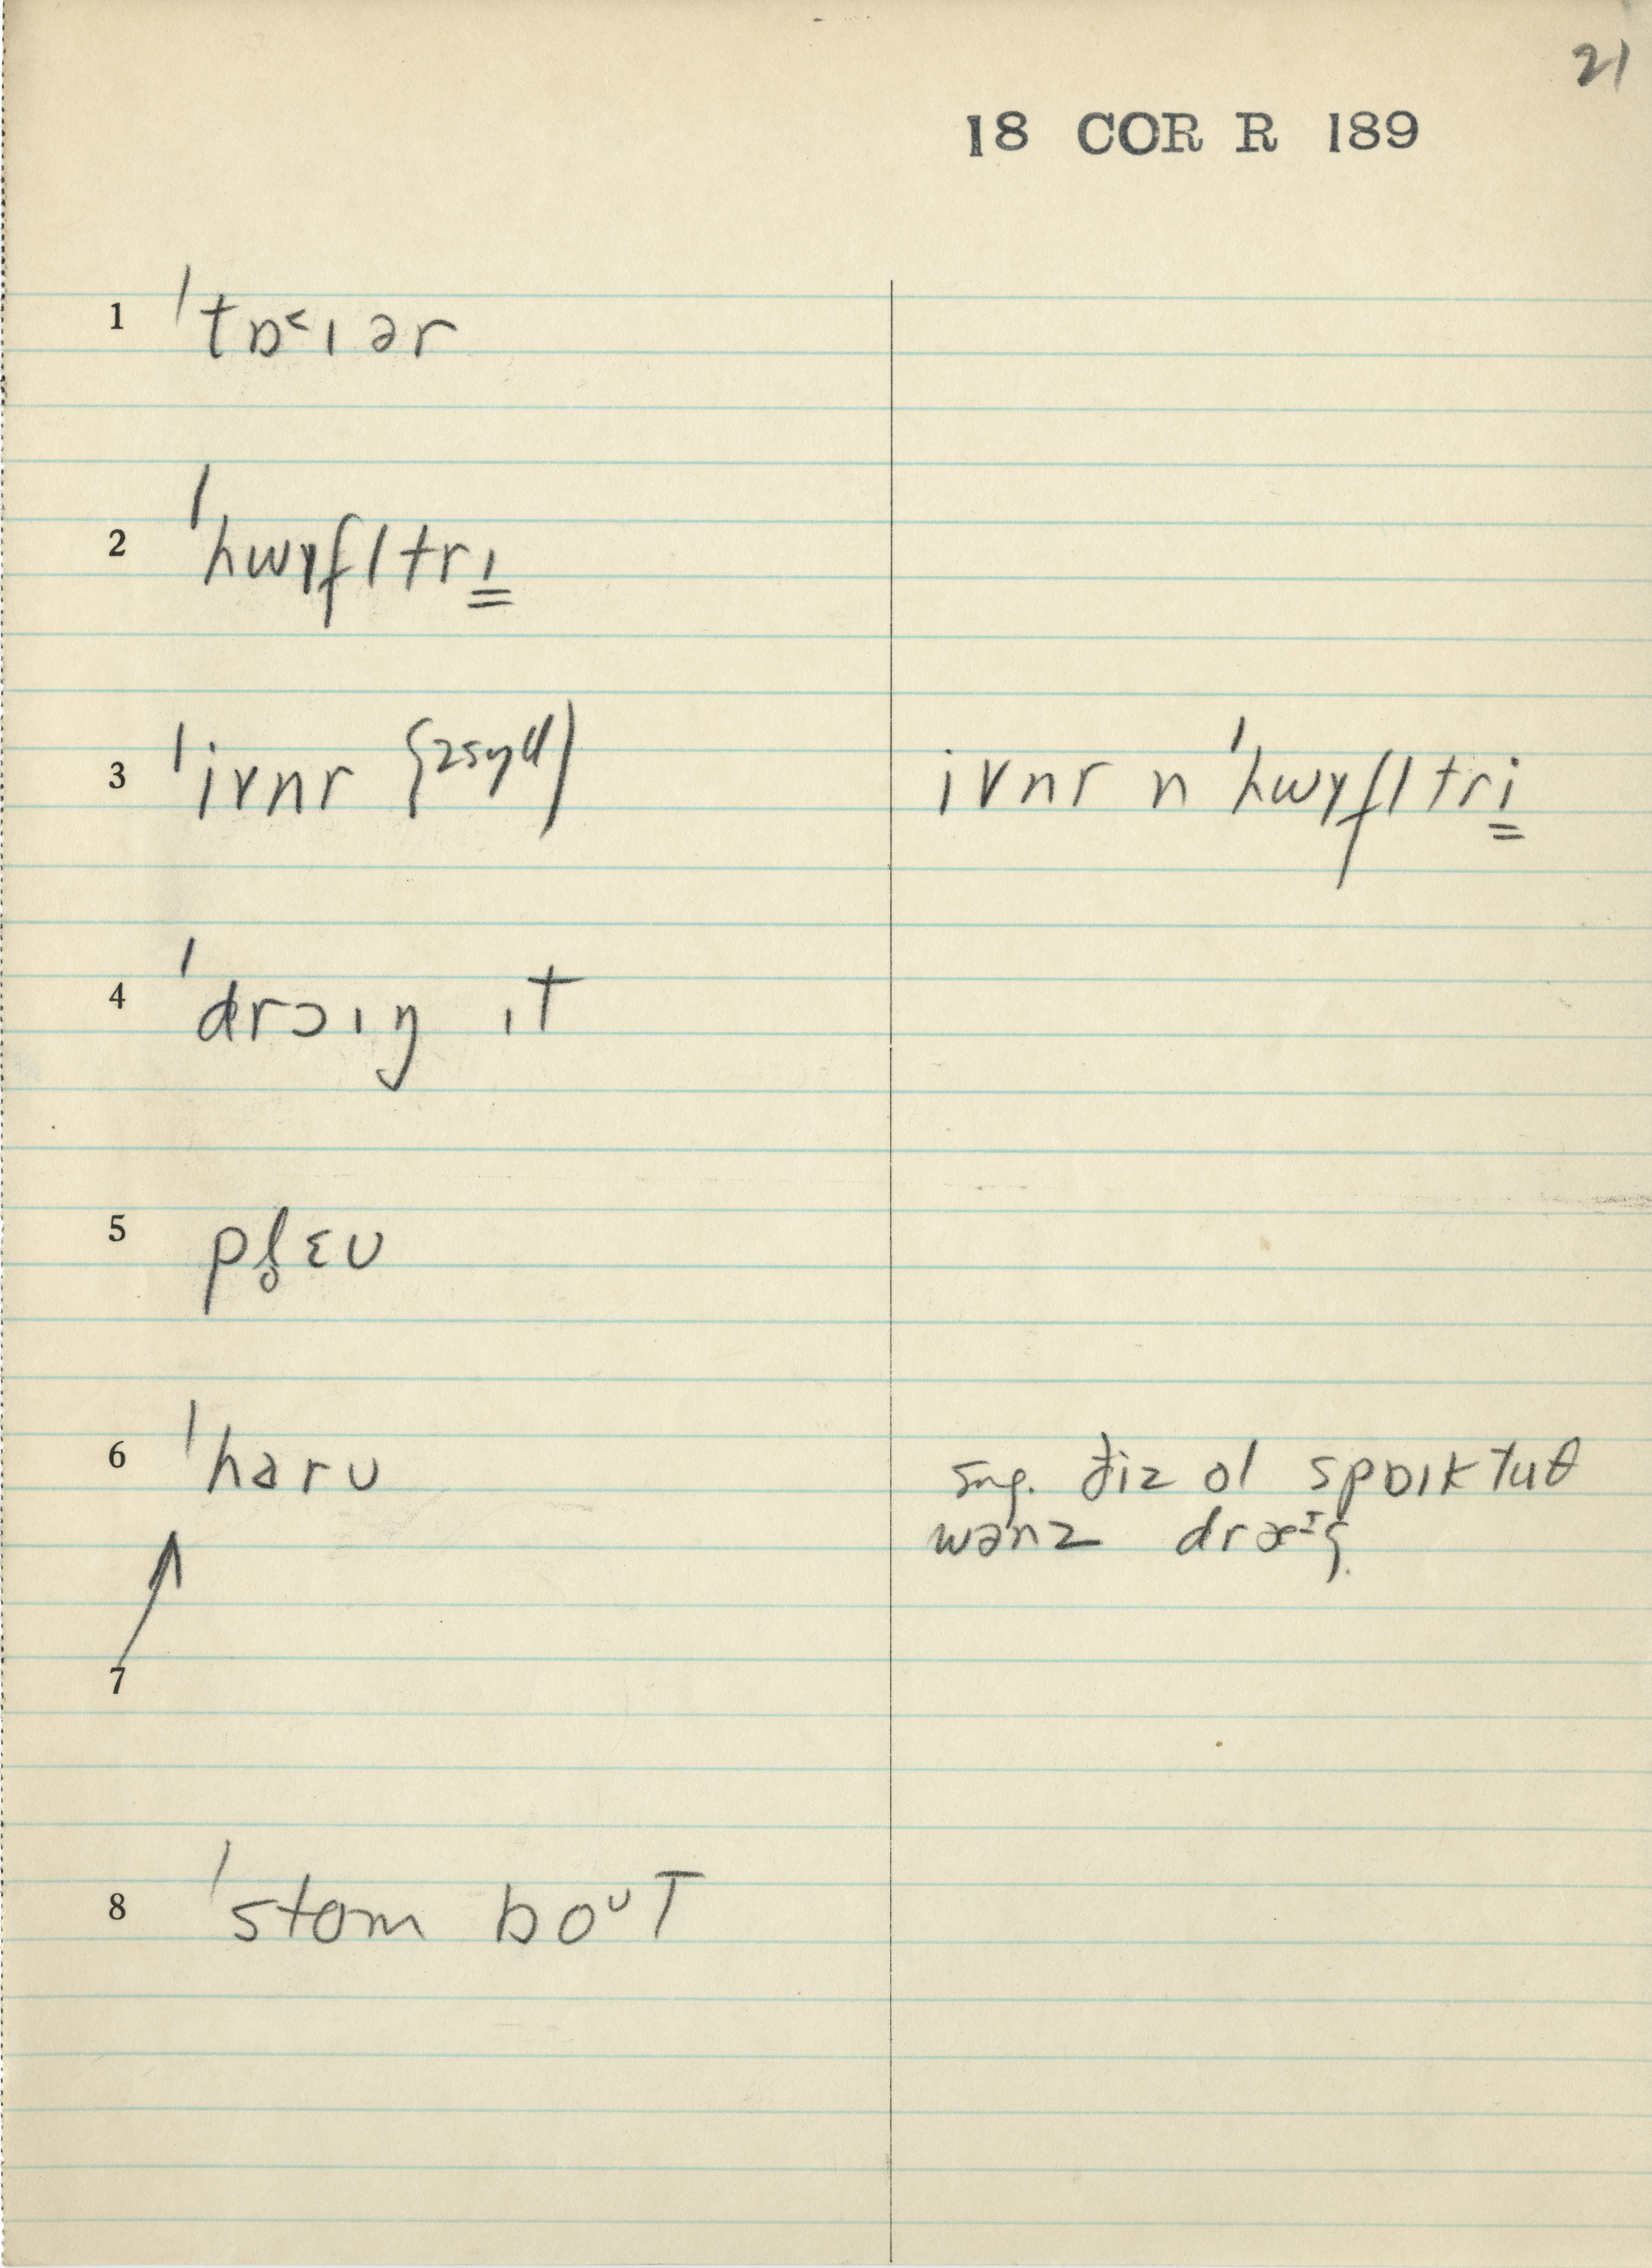 21
18 COR R 189
1 ˈtɒ˂ɪər
2 ˈhwɪfltrɪ̳
3 ˈivnr ivnr n ˈhwɪfltri̳
4 ˈdrɔɪŋ ɪt
5 pl̥ɛʊ
6 ˈharʊ sng. ðiz ol spɒɪk tuθ
wənz
7
8 ˈstom boᶷt